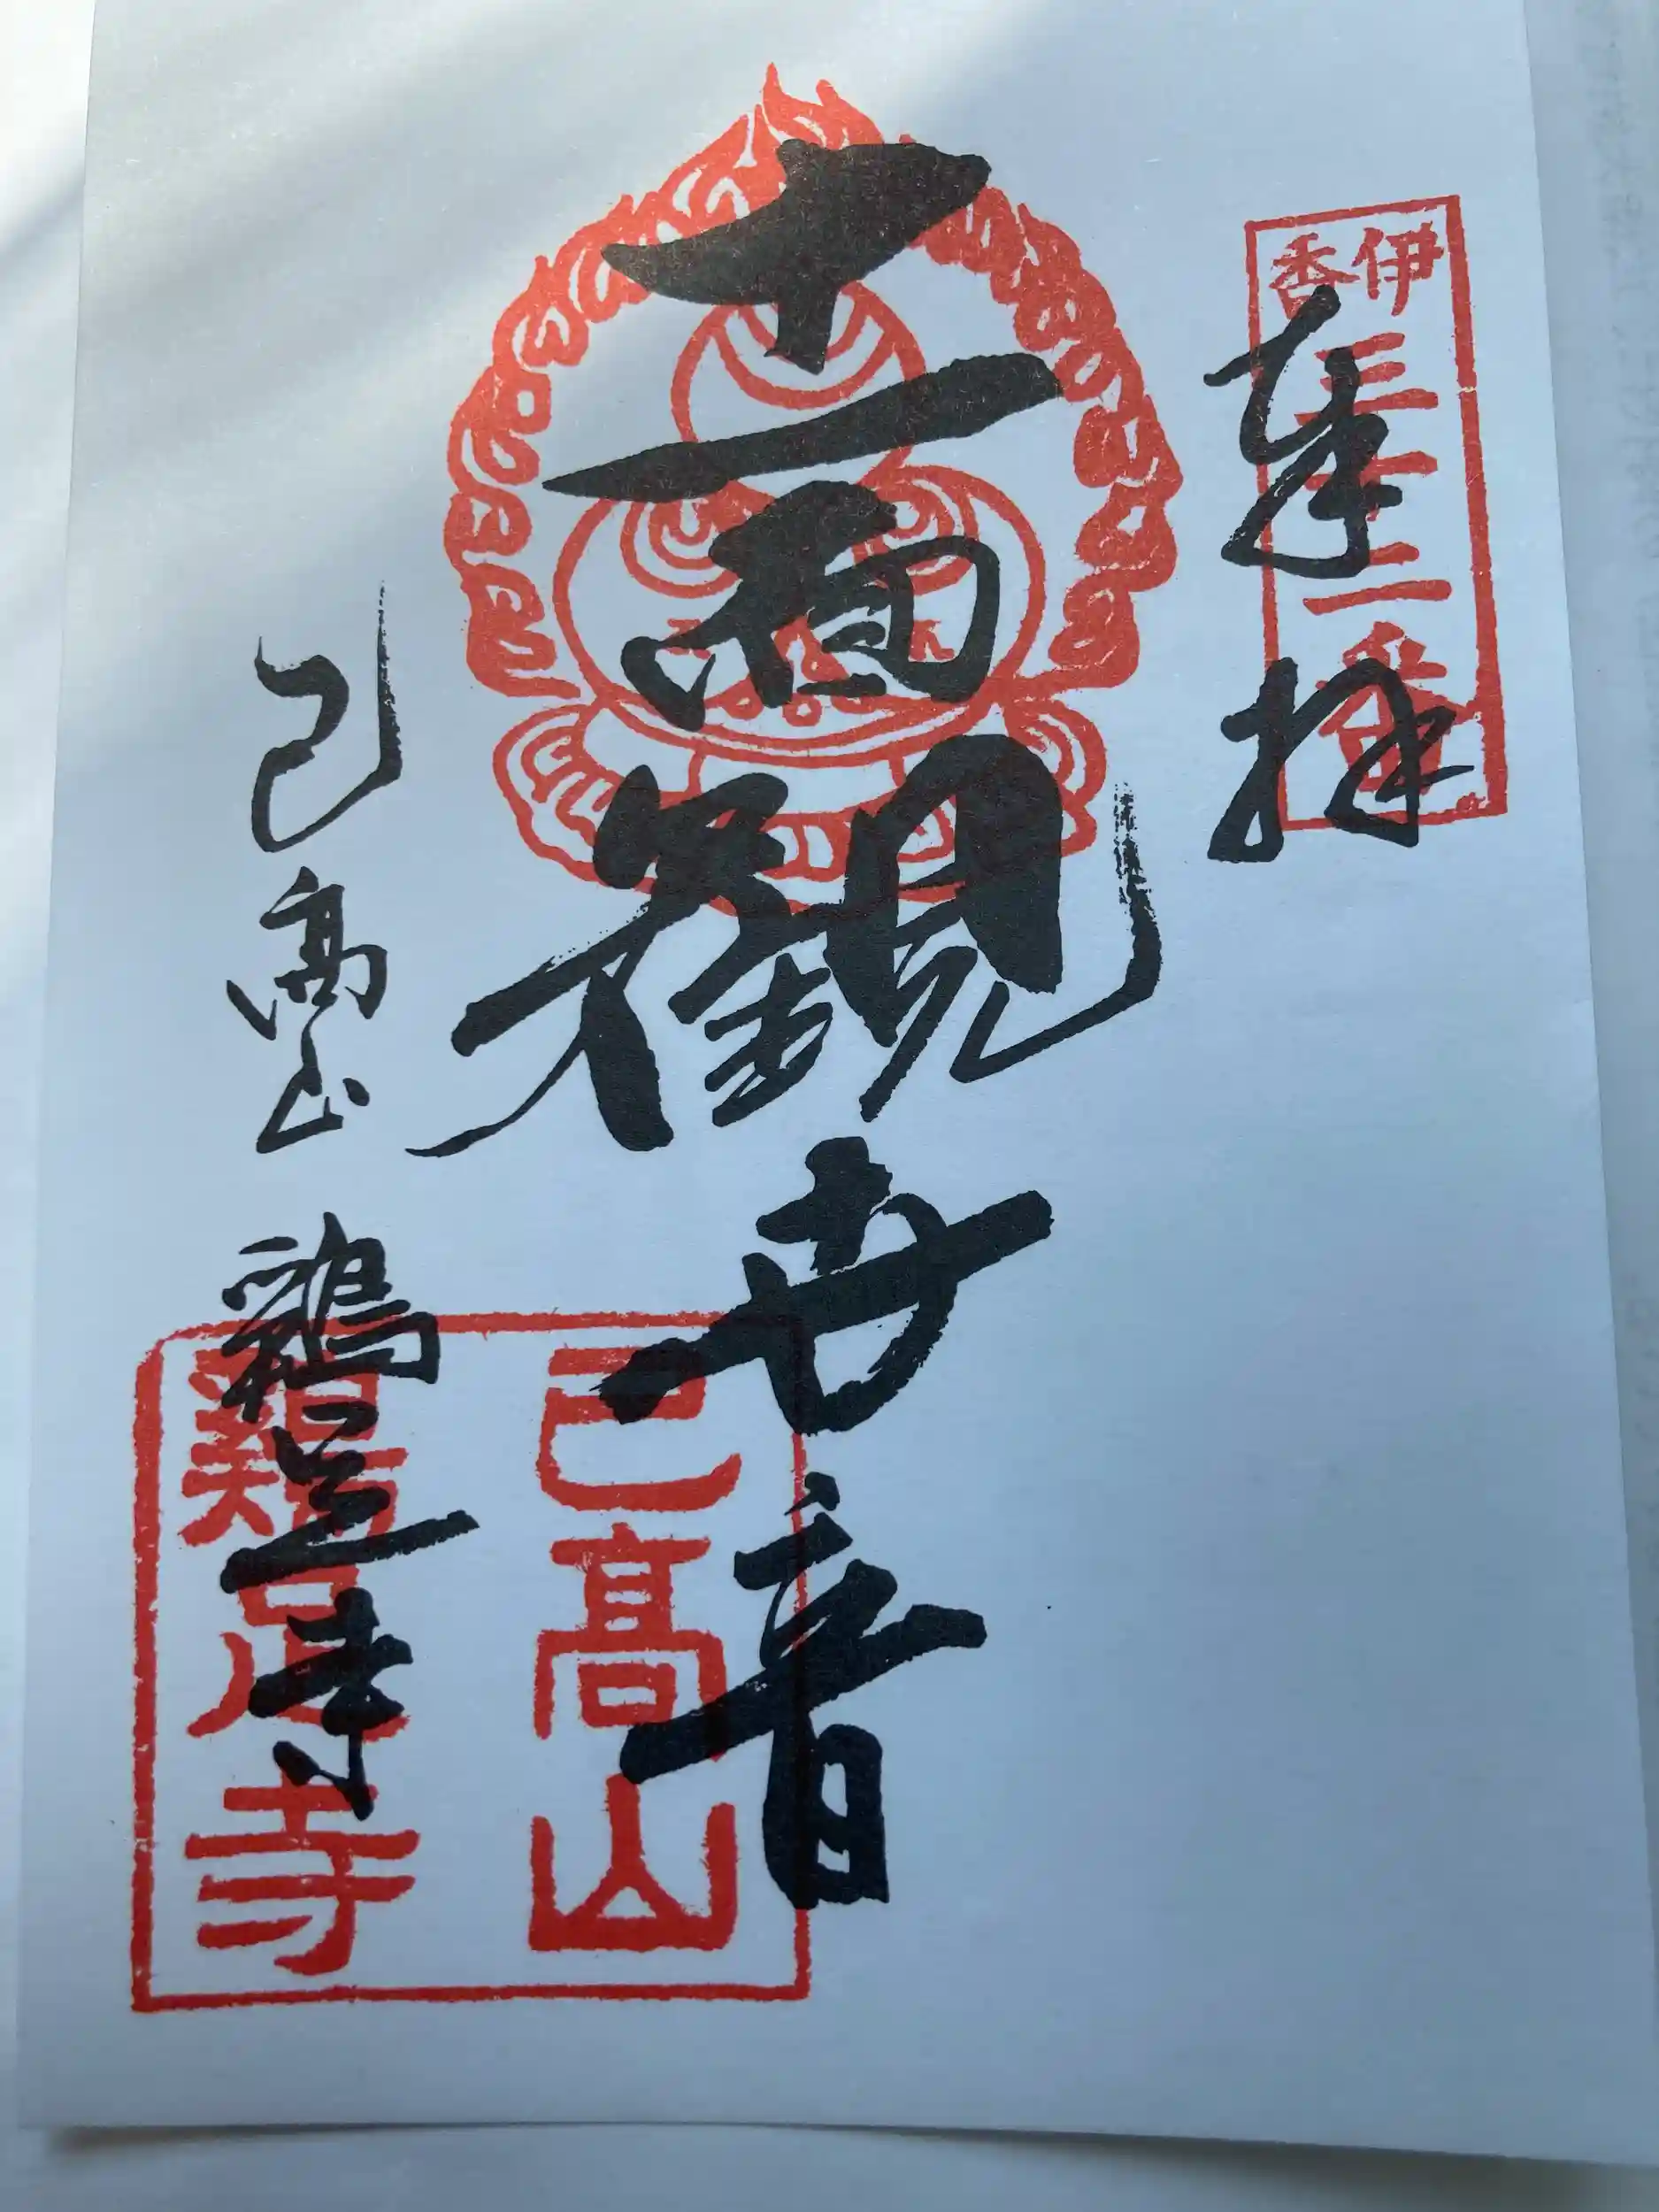 伊香三十三番
奉拝
十一面観世音
己高山
鶏足寺
己高山
鶏足寺